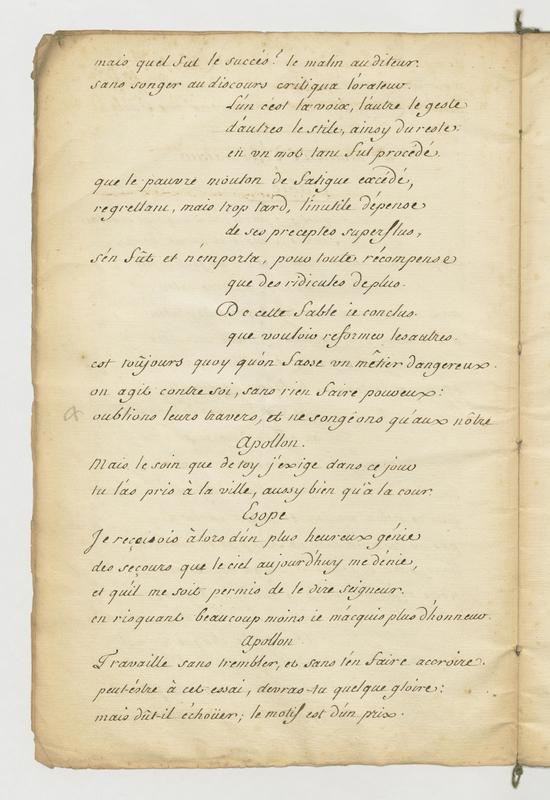 mais quel fut le succés? le malin auditeur.
sans songer au discours critiqua l'orateur.
L'un c'est la voix, l'autre le geste
d'autres le stile, ainsy du reste.
en un mot tant fut procédé
que le pauvre mouton de fatigue excédé,
regrettant, mais trop tard, l'inutile dépense
de ses preceptes superflus,
s'en fût et n'emporta, pour toute récompense
que des ridicules de plus.
De cette fable ie conclus.
que vouloir reformer les autres.
est toûjours quoy qu'on fasse un métier dangereux.
on agit contre soi, sans rien faire pour eux:
oublions leurs travers, et ne songeons qu'aux nôtre
Apollon.
Mais le soin que de toy j'exige dans ce jour
tu l'as pris à la ville, aussy bien qu'à la cour.
Esope
Je reçevois àlors d'un plus heureux génie
des secours que le ciel aujourd'huy me dénie,
et qu'il me soit permis de le dire seigneur.
en risquant beaucoup moins ie m'acquis plus d'honneur.
Apollon
Travaille sans trembler, et sans t'en faire accroire.
peut-être à cet essai, devras-tu quelque gloire:
mais dût-il échoüer; le motif est d'un prix.